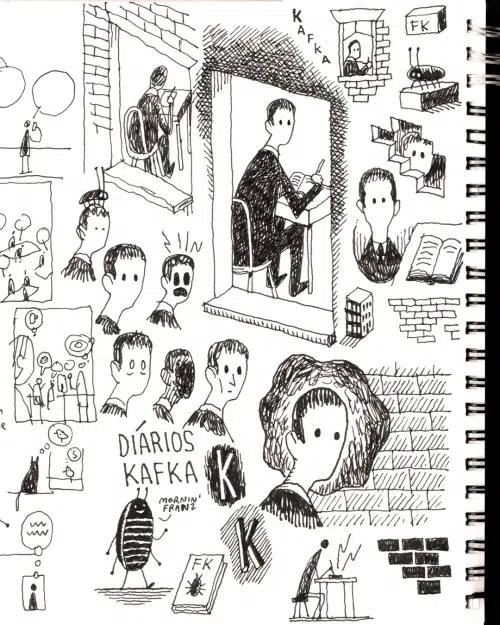 KAFKA
FK
DÍÁRIOS
KAFKA
K
MORNIN'
FRANZ
K
FK